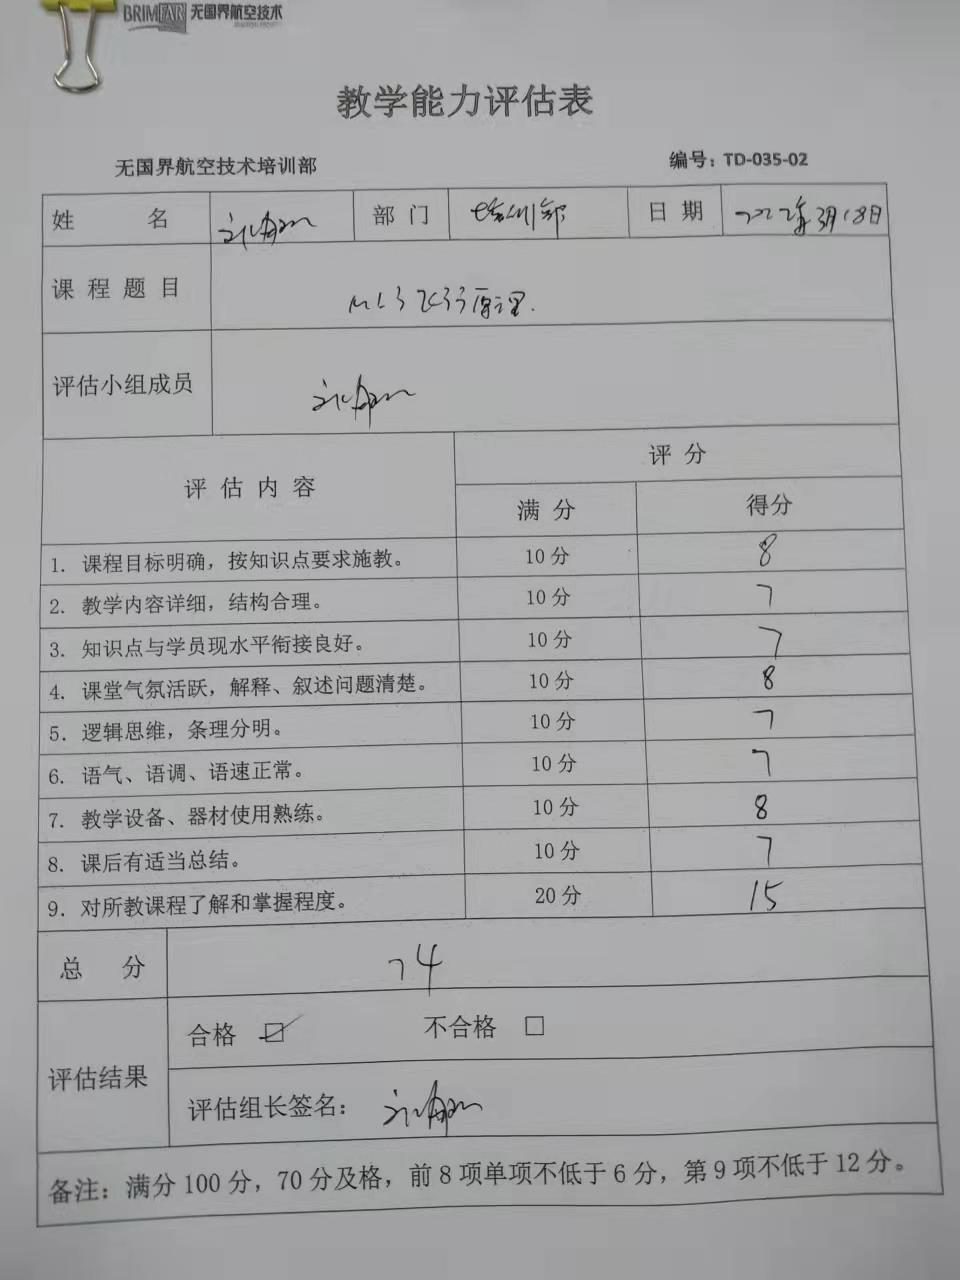 BRIMFAR 无国界航空技术
教学能力评估表
无国界航空技术培训部 编号：TD-035-02
姓 名 部 门 培训部 日 期 2022年3月18日
课 程 题 目 M1.3飞行原理.
评估小组成员
评 估 内 容 评 分
满 分 得分
1. 课程目标明确，按知识点要求施教。 10 分 8
2. 教学内容详细，结构合理。 10 分 7
3. 知识点与学员现水平衔接良好。 10 分 7
4. 课堂气氛活跃，解释、叙述问题清楚。 10 分 8
5. 逻辑思维，条理分明。 10 分 7
6. 语气、语调、语速正常。 10 分 7
7. 教学设备、器材使用熟练。 10 分 8
8. 课后有适当总结。 10 分 7
9. 对所教课程了解和掌握程度。 20 分 15
总 分 74
评估结果 合格 ☑ 不合格 □
评估组长签名：
备注：满分 100 分，70 分及格，前 8 项单项不低于 6 分，第 9 项不低于 12 分。